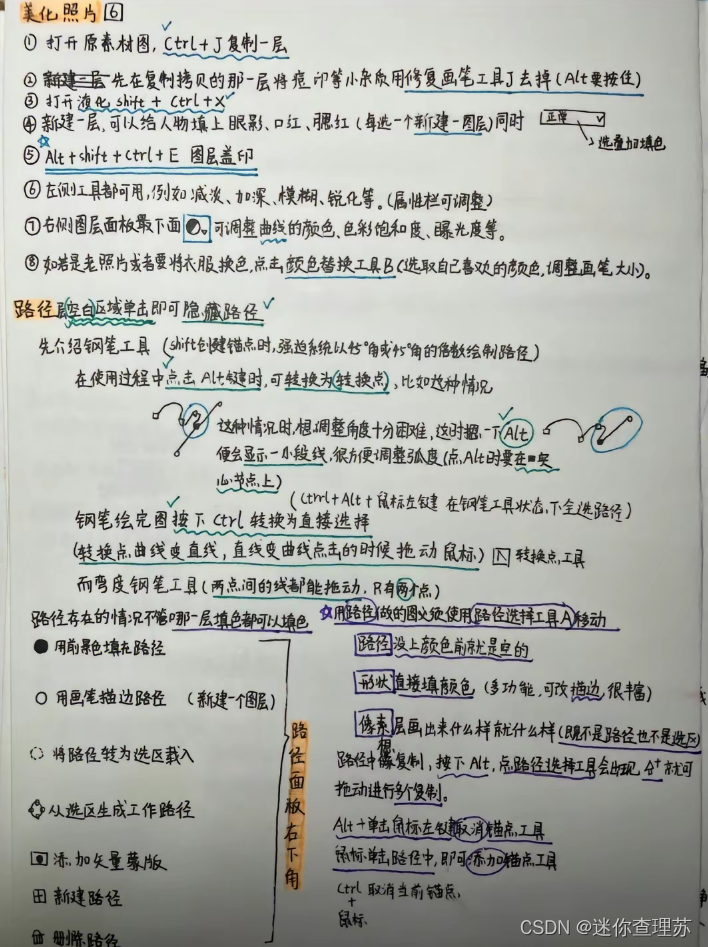 美化照片 6
① 打开原素材图，Ctrl+J复制一层
② 新建一层 先在复制拷贝的那一层将痘印等小杂质用修复画笔工具J去掉(Alt要按住)
③ 打开液化 shift + Ctrl+X
④ 新建一层，可以给人物填上眼影、口红、腮红 (每选一个新建一图层)同时 正常
选叠加填色
⑤ Alt+shift+Ctrl+E 图层盖印
⑥ 左侧工具都可用，例如减淡、加深、模糊、锐化等。(属性栏可调整)
⑦ 右侧图层面板最下面 可调整曲线的颜色、色彩饱和度、曝光度等。
⑧ 如若是老照片或者要将衣服换色，点击颜色替换工具B(选取自己喜欢的颜色，调整画笔大小)。
路径层空白区域单击即可隐藏路径
先介绍钢笔工具 (shift创建锚点时，强迫系统以45°角或45°角的倍数绘制路径)
在使用过程中点击Alt键时，可转换为(转换点)，比如这种情况
这种情况时，想调整角度十分困难，这时摁一下Alt
便会显示一小段线，很方便调整弧度(点Alt时要在实
心节点上)
(Ctrl+Alt+鼠标左键 在钢笔工具状态下全选路径)
钢笔绘完图按下Ctrl转换为直接选择
(转换点,曲线变直线，直线变曲线点击的时候拖动鼠标) 转换点工具
而弯度钢笔工具(两点间的线都能拖动，只有两个点)
路径存在的情况不管哪一层填色都可以填色
☆用路径做的图必须使用路径选择工具A移动
路径没上颜色前就是空的
形状直接填颜色 (多功能，可改描边，很丰富)
像素层画出来什么样就什么样(既不是路径也不是选区)
路径中想复制，按下Alt，点路径选择工具会出现 就可
拖动进行多个复制。
Alt+单击鼠标左键取消锚点工具
鼠标单击路径中，即可添加锚点工具
Ctrl 取消当前锚点
+
鼠标
● 用前景色填充路径
○ 用画笔描边路径 (新建一个图层)
将路径转为选区载入
从选区生成工作路径
添加矢量蒙版
新建路径
删除路径
路径面板右下角
CSDN @迷你查理苏